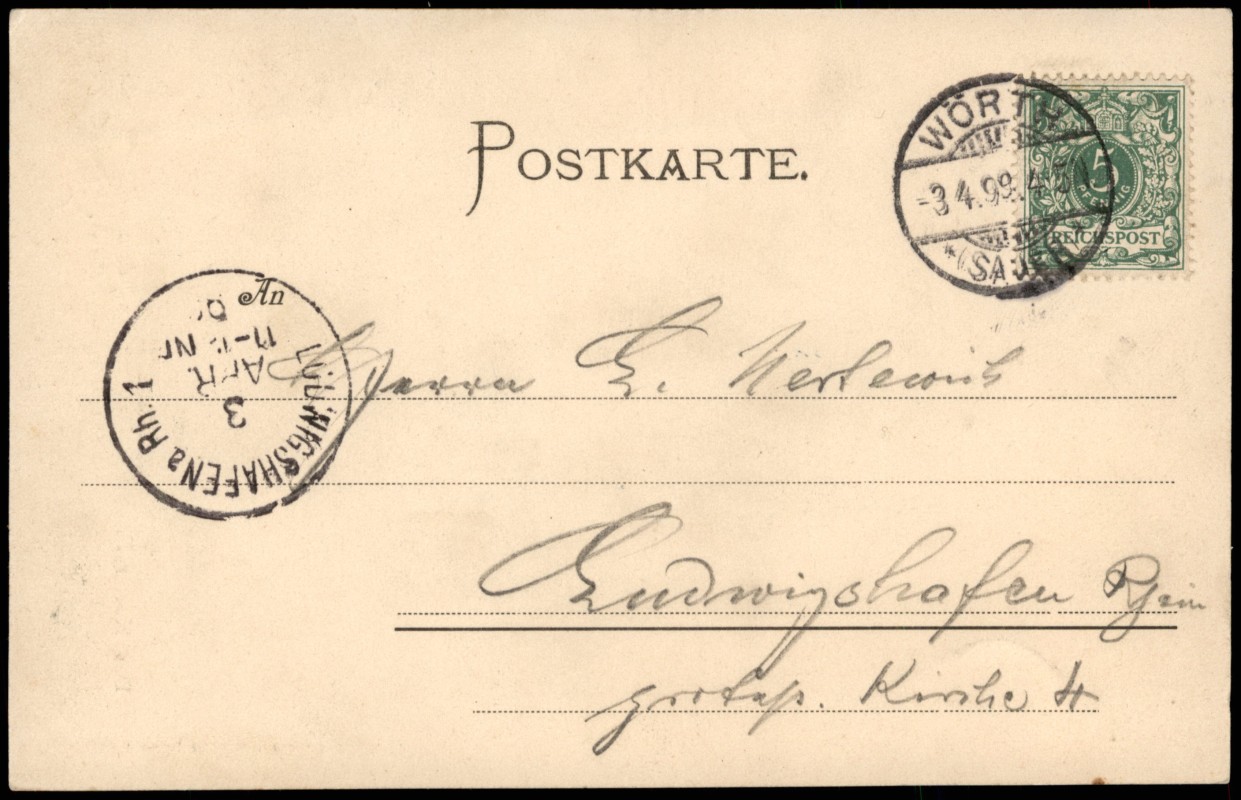 POSTKARTE.
WÖRTH
-3.4.99.4-5N
*(SAUER)*
5
PFENNIG
REICHSPOST
An
LUDWIGSHAFEN a Rh. 1
3
APR.
11-12 Nm
99
Herrn E.
Ludwigshafen Rhein
protesp. Kirche 4